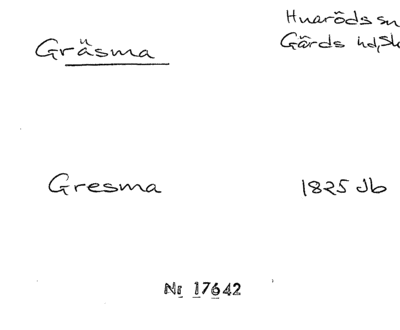 Gräsma
Huaröds sn
Gärds hd, Sk
Gresma 1825 Jb
Nr 17642